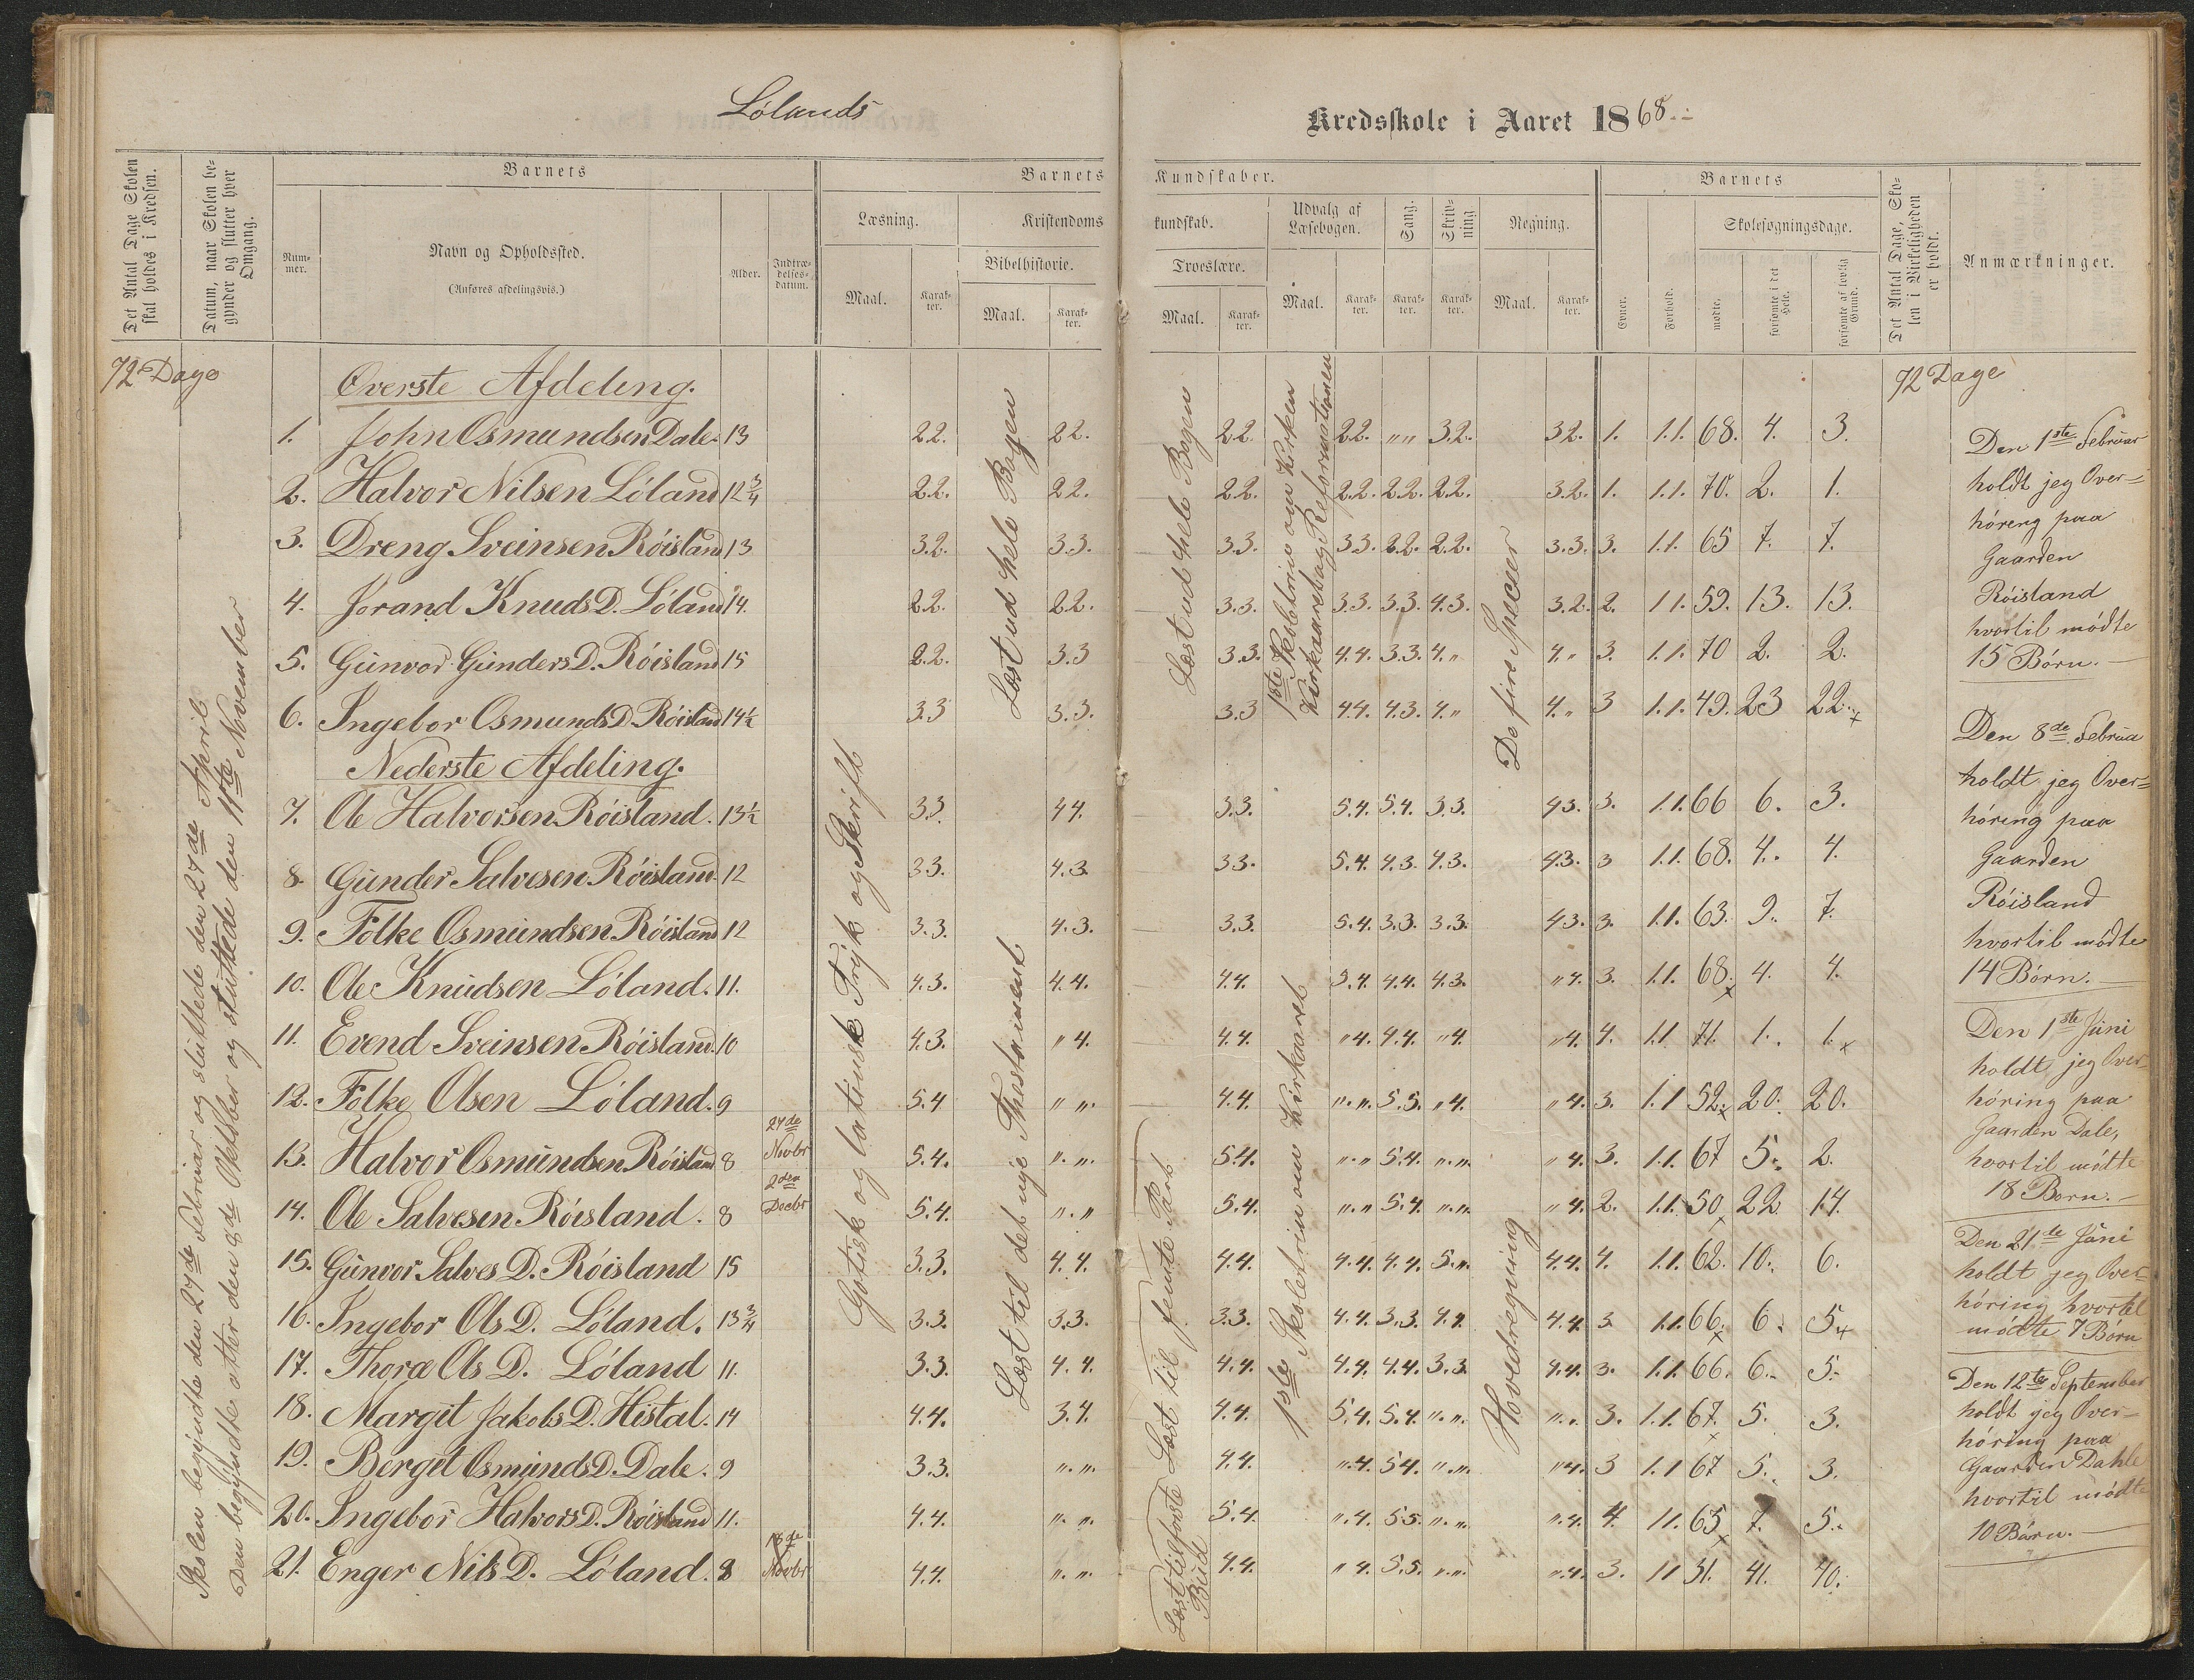 Lølands
Kredsskole i Aaret 1868.
Det Antal Dage Skolen skal holdes i Kredsen.
Datum, naar Skolen begynder og slutter hver Omgang.
Barnets
Nummer.
Navn og Opholdssted.
(Anføres afdelingsvis.)
Alder.
Indtrædelsesdatum.
Barnets
Læsning.
Kristendoms
Maal.
Karakter.
Bibelhistorie.
Maal.
Karakter.
Kundskaber.
kundskab.
Troeslære.
Maal.
Karakter.
Udvalg af Læsebogen.
Maal.
Karakter.
Sang.
Karakter.
Skrivning
Karakter.
Regning.
Maal.
Karakter.
Barnets
Evner.
Forhold.
Skolesøgningsdage.
mødte.
forsømte i det Hele.
forsømte af lovlig Grund.
Det Antal Dage, Skolen i Virkeligheden er holdt.
Anmærkninger.
72 Dage
72 Dage
Skolen begyndte den 27de Februar og sluttede den 27de April
Den begyndte atter den 8de Oktober og sluttede den 11te November
Øverste Afdeling.
1. John Osmundsen Dale. 13 2.2. 2.2. 2.2. 2.2. „„ 3.2. 3.2. 1. 1.1. 68. 4. 3.
2. Halvor Nilsen Løland 12¾ 2.2. 2.2. 2.2. 2.2. 2.2. 2.2. 3.2. 1. 1.1. 70. 2. 1.
3. Dreng Sveinsen Røisland 13 3.2. 3.3. 3.3. 3.3. 2.2. 2.2. 3.3. 3. 1.1. 65 7. 7.
4. Jorand Knuds D. Løland 14. 2.2. 2.2. 3.3. 3.3. 3.3. 4.3. 3.2. 2. 1.1. 59. 13. 13.
5. Gunvor Gunders D. Røisland 15 2.2. 3.3 3.3. 4.4. 3.3. 4.„ 4.„ 3. 1.1. 70 2. 2.
6. Ingebor Osmunds D. Røisland 14½ 3.3 3.3. 3.3 4.4. 4.3. 4.„ 4.„ 3 1.1. 49. 23 22.x
Nederste Afdeling.
7. Ole Halvorsen Røisland. 13½ 3.3. 4.4. 3.3. 5.4. 5.4. 3.3. 4.3. 3. 1.1. 66 6. 3.
8. Gunder Salvesen Røisland. 12 3.3. 4.3. 3.3. 5.4. 4.3. 4.3. 4.3. 3 1.1. 68. 4. 4.
9. Folke Osmundsen Røisland 12 3.3. 4.3. 3.3. 5.4. 3.3. 3.3. 4.3. 3. 1.1. 63. 9. 7.
10. Ole Knudsen Løland. 11. 4.3. 4.4. 4.4. 5.4. 4.4. 4.3. „4. 3. 1.1. 68.x 4. 4.
11. Evend Sveinsen Røisland. 10 4.3. „4. 4.4. „4. 4.4. „4. „4. 4. 1.1 71. 1. 1.x
12. Folke Olsen Løland. 9 5.4 „„. 4.4. „.„. 5.5. „4. „4. 3. 1.1 52.x 20. 20.
13. Halvor Osmundsen Røisland 8 27de Novbr 5.4. „.„. 5.4. „.„ 5.4. „.„. „4. 3. 1.1. 67 5. 2.
14. Ole Salvesen Røisland. 8 2den Decbr 5.4. „.„ 5.4. „.„ 5.4. „.„. „4. 2. 1.1. 50x 22 14.
15. Gunvor Salves D. Røisland 15 3.3. 4.4. 4.4. 4.4. 4.4. 5.„. 4.4. 4. 1.1. 62. 10. 6.
16. Ingebor Ols D. Løland. 13¾ 3.3. 3.3. 3.3. 4.4. 3.3. 4.4. 4.4 3. 1.1. 66.x 6. 5.x
17. Thora Ols D. Løland 11. 3.3. 4.4. 4.4. 4.4. 4.4. 3.3 4.4. 3. 1.1. 66. 6. 5.
18. Margit Jakobs D. Histal. 14 4.4. 3.4. 4.4. 5.4. 5.4. „.„. „.. 3. 1.1. 67.x 5. 3.
19. Børgit Osmunds D. Dale. 9 3.3. „.„. 4.4. „.4. 5.4. „.„. „4. 3 1.1 67 5. 3.
20. Ingebor Halvors D. Røisland 11. 4.4. „. „. 5.4. „.4. 5.5. „.„. „.4. 4. 1.1. 65x 7. 5.
21. Enger Nils D. Løland. 8 18de Novbr 4.4. „.„. 4.4. „4. 5.5. „.„. „.4. 3. 1.1 31. 41. 40.
Gotisk og latinsk Tryk og Skrift
Læst ud hele Bogen
Læst til det nye Thestament
Læst ud hele Bogen
Læst til femte Part
Læst til første Bud
1ste Skoletrin om Kirken
Kirkaaret og Reformationen
1ste Skoletrin om Kirkaaret
De fire Specier
Hovedregning
Den 1ste Februar
holdt jeg Over-
høreng paa
Gaarden
Røisland
hvortil mødte
15 Børn.
Den 8de Februa
holdt jeg Over-
høring paa
Gaarden
Røisland
hvortil mødte
14 Børn.
Den 1ste Juni
holdt jeg Over-
høring paa
Gaarden Dale,
hvortil mødte
18 Børn.
Den 21de Juni
holdt jeg Over-
høring hvortil
mødte 7 Børn
Den 12te September
holdt jeg Over-
høring paa
Gaarden Dahle
hvortil mødte
10 Børn.